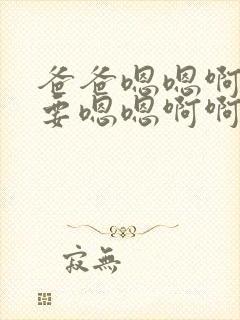 爸爸嗯嗯啊
要嗯嗯啊啊
寂無